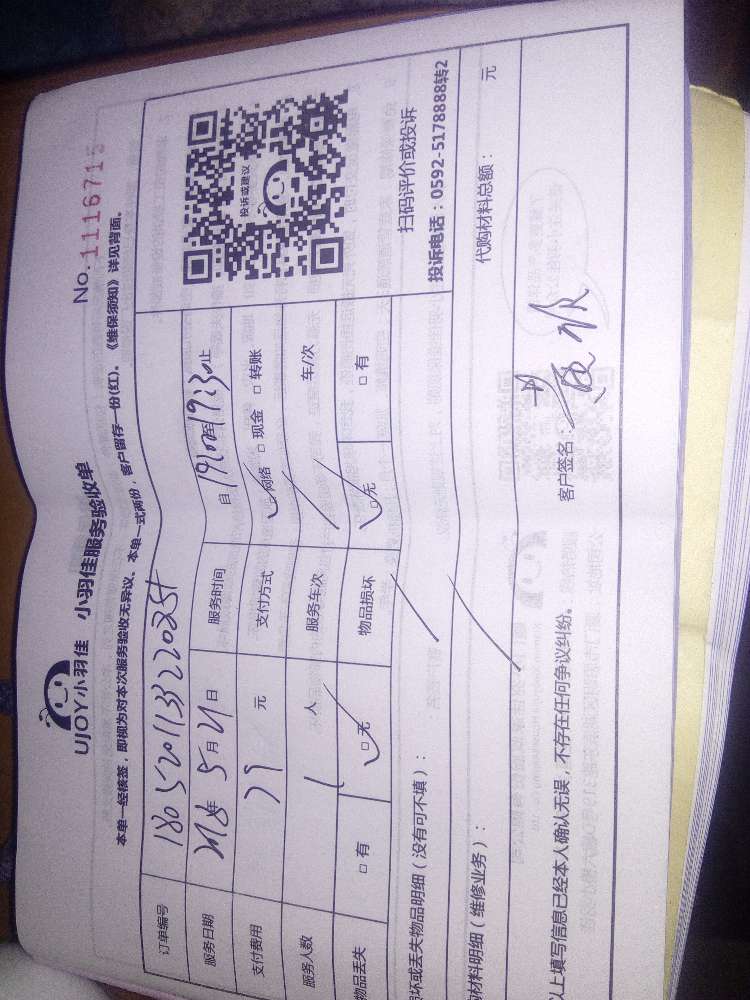 UJOY小羽佳 小羽佳服务验收单
No.1116715
本单一经核签，即视为对本次服务验收无异议。本单一式两份，客户留存一份(红)。《维保须知》详见背面。
订单编号
服务日期 2018年 5月21日 服务时间 自 19:00至19:30止
支付费用 元 支付方式 ☑网络 □现金 □转账
服务人数 1 人 服务车次 / 车/次
物品丢失 □有 ☑无 物品损坏 ☑无 □有
投诉或建议
扫码评价或投诉
投诉电话：0592-5178888转2
损坏或丢失物品明细（没有可不填）： /
购材料明细（维修业务）： /
代购材料总额： 元
以上填写信息已经本人确认无误，不存在任何争议纠纷。
客户签名：